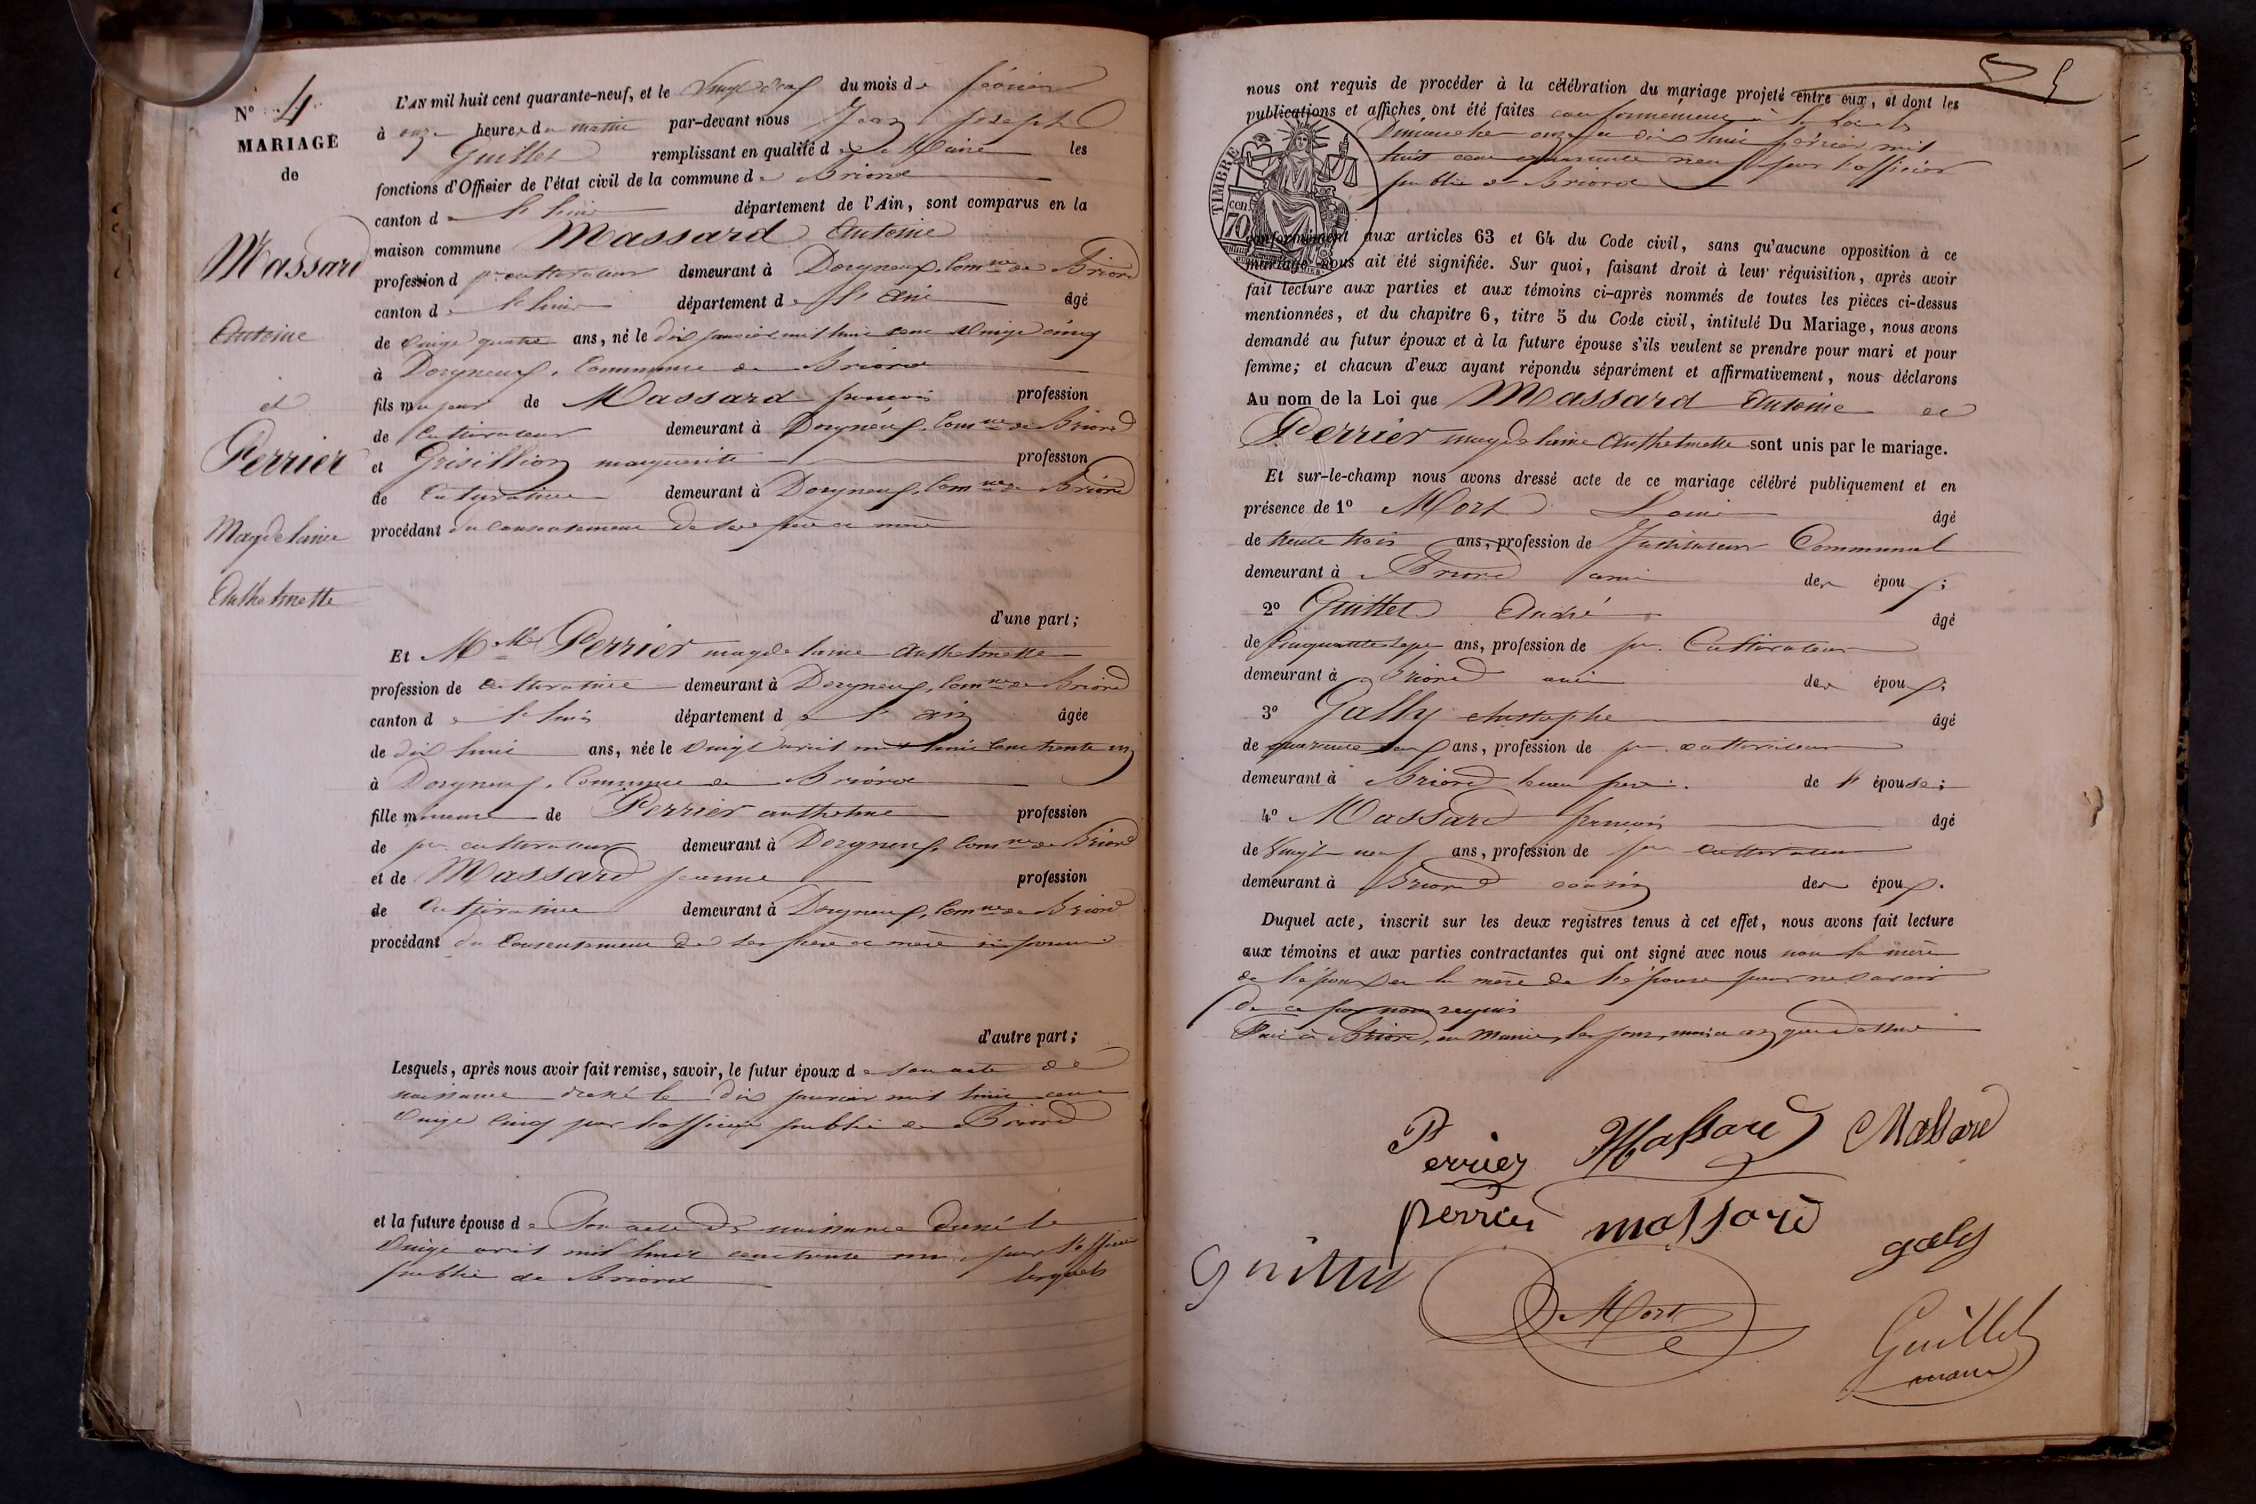 N° 4
MARIAGE
de
Massard
Antoine
et
Perrier
Magdelaine
Anthelmette
L'AN mil huit cent quarante-neuf, et le du mois de février
à onze heures du matin par-devant nous Jean Joseph
Guillet remplissant en qualité de Maire les
fonctions d'Officier de l'état civil de la commune de Briord
canton de département de l'Ain, sont comparus en la
maison commune Massard Antoine
profession de pre cultivateur demeurant à Dorgneuf, Comne de Briord
canton de département de l'Ain âgé
de vingt quatre ans, né le dix janvier mil huit cent vingt cinq
à Dorgneuf, Commune de Briord
fils majeur de Massard françois profession
de Cultivateur demeurant à Dorgneuf, Comne de Briord
et Grisillion marguerite profession
de Cultivatrice demeurant à Dorgneuf, Comne de Briord
procédant du consentement de ses père et mère
d'une part;
Et Mlle Perrier magdelaine Anthelmette
profession de cultivatrice demeurant à Dorgneuf, Comne de Briord
canton de département de l'Ain âgée
de dix huit ans, née le vingt avril mil huit cent trente un
à Dorgneuf, Commune de Briord
fille mineure de Perrier anthelme profession
de pre cultivateur demeurant à Dorgneuf, Comne de Briord
et de Massard jeanne profession
de Cultivatrice demeurant à Dorgneuf, Comne de Briord
procédant du Consentement de ses père et mère
d'autre part;
Lesquels, après nous avoir fait remise, savoir, le futur époux de son acte de
naissance dressé le dix janvier mil huit cent
vingt cinq par l'officier public de Briord
et la future épouse de Son acte de naissance dressé le
vingt avril mil huit cent trente un par l'officier
public de Briord lesquels
5
nous ont requis de procéder à la célébration du mariage projeté entre eux, et dont les
publications et affiches ont été faites conformément à la loi les
Dimanches onze et dix huit février mil
huit cent quarante neuf par l'officier
public de Briord
TIMBRE
cen.
70
conformément aux articles 63 et 64 du Code civil, sans qu'aucune opposition à ce
mariage nous ait été signifiée. Sur quoi, faisant droit à leur réquisition, après avoir
fait lecture aux parties et aux témoins ci-après nommés de toutes les pièces ci-dessus
mentionnées, et du chapitre 6, titre 5 du Code civil, intitulé Du Mariage, nous avons
demandé au futur époux et à la future épouse s'ils veulent se prendre pour mari et pour
femme; et chacun d'eux ayant répondu séparément et affirmativement, nous déclarons
Au nom de la Loi que Massard Antoine et
Perrier magdelaine Anthelmette sont unis par le mariage.
Et sur-le-champ nous avons dressé acte de ce mariage célébré publiquement et en
présence de 1° Mort Louis âgé
de trente trois ans, profession de Instituteur Communal
demeurant à Briord ami des époux;
2° Guillet André âgé
de Cinquante sept ans, profession de pre Cultivateur
demeurant à Briord ami des époux;
3° Gally christophe âgé
de quarante ans, profession de pre cultivateur
demeurant à Briord beau frère de l'épouse;
4° Massard françois âgé
de vingt neuf ans, profession de pre cultivateur
demeurant à Briord cousin des époux.
Duquel acte, inscrit sur les deux registres tenus à cet effet, nous avons fait lecture
aux témoins et aux parties contractantes qui ont signé avec nous non la mère
de l'époux et la mère de l'épouse pour ne savoir
de ce par nous requis
Fait à Briord, en Mairie, les jour, mois et an que dessus
Perrier Massard Massard
perrier massard galy
Guillet Mort
Guillet
maire